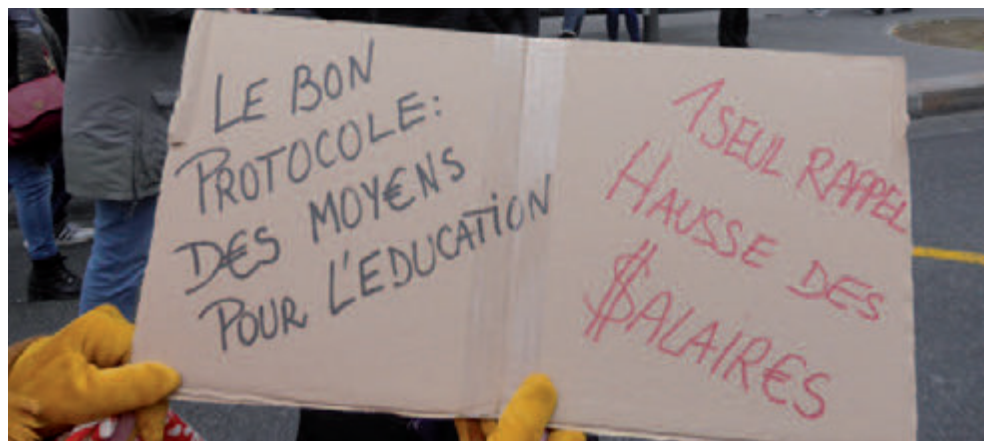 LE BON
PROTOCOLE:
D€S MOY€NS
POUR L'EDUCATION
1 SEUL RAPPEL
HAUSSE DES
$ALAIR€S